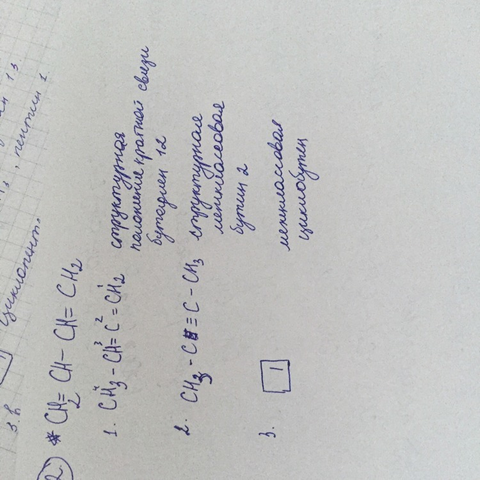 1 3
, пентин 1
3. в
Циклопент.
2.) * CH2=CH-CH=CH2
1. CH3-CH=C=CH2
4 3 2 1
структурная
положение кратной связи
бутадиен 12
2. CH3-C≡C-CH3
структурная
межклассовая
бутин 2
3.
межклассовая
циклобутен